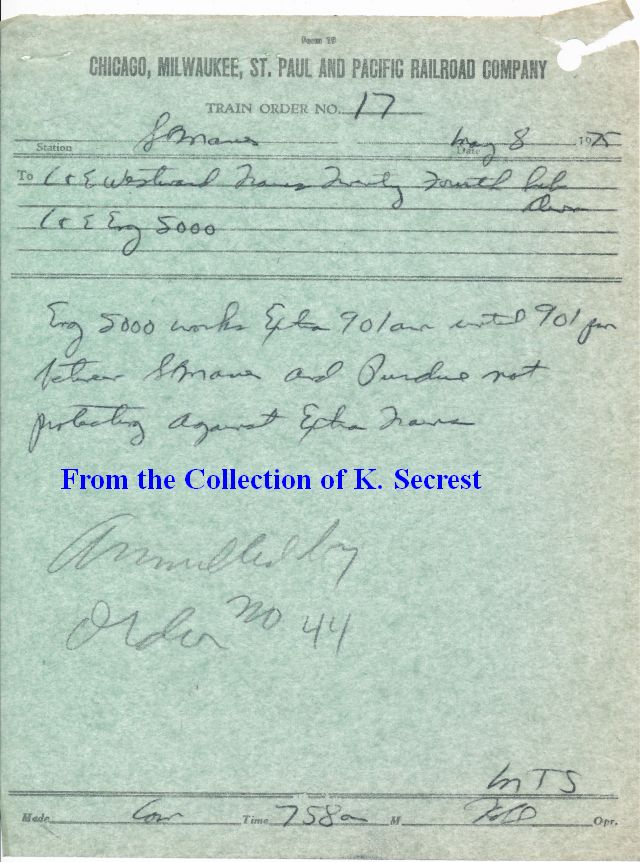 Form 19
CHICAGO, MILWAUKEE, ST. PAUL AND PACIFIC RAILROAD COMPANY
TRAIN ORDER NO. 17
Station St Maries Date May 8 1975
To C&E Westward Trains Twenty Fourth Sub
Divn
C&E Eng 5000
Eng 5000 works Extra 901am until 901pm
between St Maries and Purdue not
protecting against Extra Trains
From the Collection of K. Secrest
Annulled by
Order No 44
MTS
Made Com Time 758a M Opr.